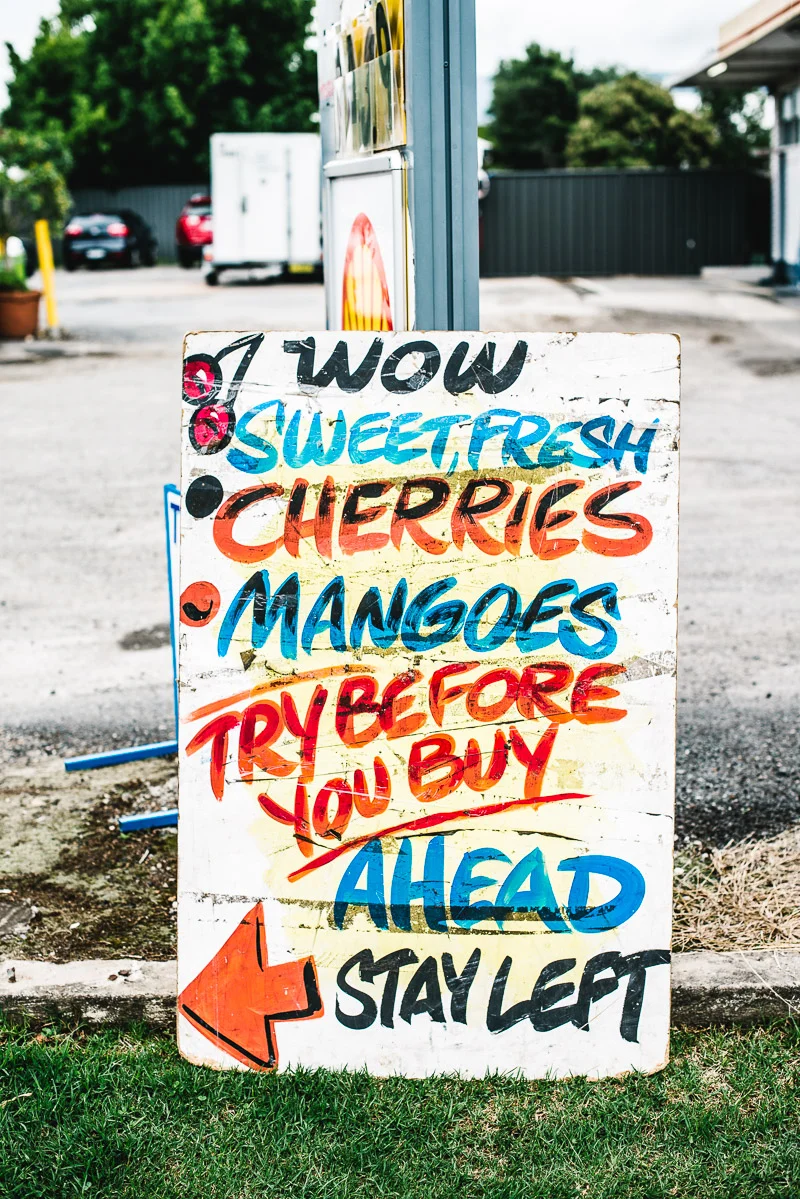 WOW
SWEET, FRESH
CHERRIES
MANGOES
TRY BEFORE
YOU BUY
AHEAD
STAY LEFT